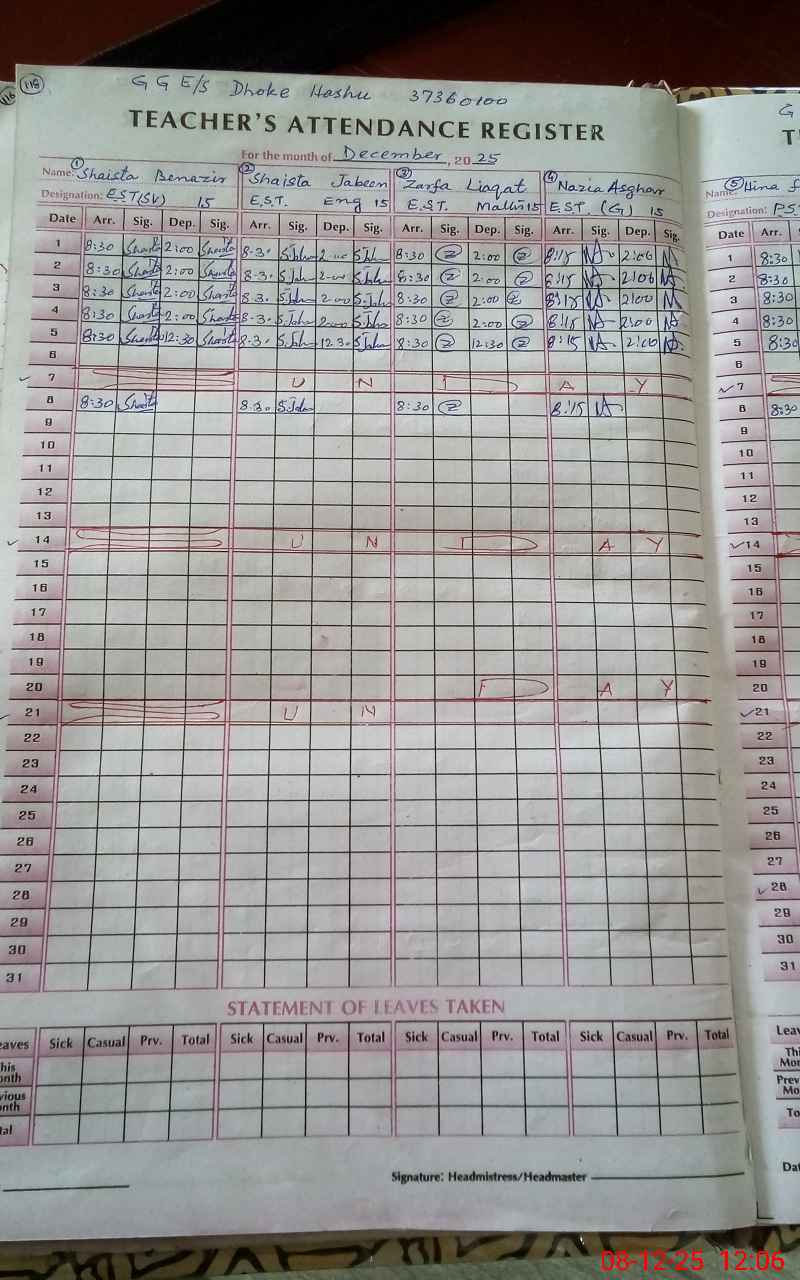 116
118
G G E/S Dhoke Hashu 37360100
TEACHER'S ATTENDANCE REGISTER
For the month of December, 2025
Name: ① Shaista Benazir ② Shaista Jabeen ③ Zarfa Liaqat ④ Nazia Asghar
Designation: EST(SV) 15 E.S.T. Eng 15 E.S.T. 15 E.S.T. (G) 15
Date Arr. Sig. Dep. Sig. Arr. Sig. Dep. Sig. Arr. Sig. Dep. Sig. Arr. Sig. Dep. Sig.
1 8:30 Shaista 2:00 Shaista 8.3. S.Jabn 2.00 S.Jabn 8:30 2:00 8:15 NA 2:00
2 8:30 Shaista 2:00 Shaista 8.3. S.Jabn 2.00 S.Jabn 8:30 2:00 8:15 NA 2:00
3 8:30 Shaista 2:00 Shaista 8.3. S.Jabn 2.00 S.Jabn 8:30 2:00 8:15 NA 2:00
4 8:30 Shaista 2:00 Shaista 8.3. S.Jabn 2.00 S.Jabn 8:30 2:00 8:15 NA 2:00
5 8:30 Shaista 12:30 Shaista 8.3. S.Jabn 12.3. S.Jabn 8:30 12:30 8:15 NA 2:00
6
7 S U N D A Y
8 8:30 Shaista 8.3. S.Jabn 8:30 8:15 NA
9
10
11
12
13
14 S U N D A Y
15
16
17
18
19
20 D A Y
21 S U N
22
23
24
25
26
27
28
29
30
31
STATEMENT OF LEAVES TAKEN
eaves Sick Casual Prv. Total Sick Casual Prv. Total Sick Casual Prv. Total Sick Casual Prv. Total
his
onth
vious
onth
tal
Signature: Headmistress/Headmaster
G
T
Name: ⑤ Hina
Designation: PS
Date Arr.
1 8:30
2 8:30
3 8:30
4 8:30
5 8:30
6
7
8 8:30
9
10
11
12
13
14
15
16
17
18
19
20
21
22
23
24
25
26
27
28
29
30
31
Leav
Thi
Mon
Prev
Mo
To
Dat
08-12-25 12:06